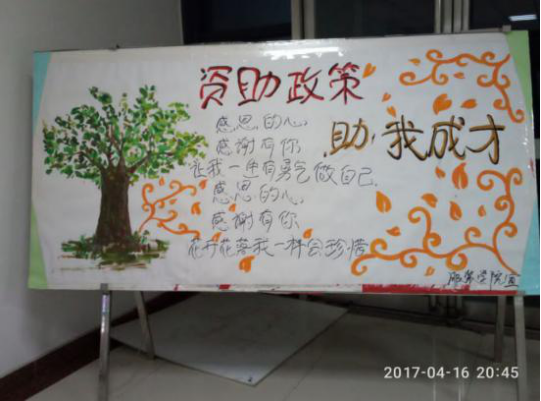 资助政策
助·我成才
感恩的心
感谢有你
让我一生有勇气做自己
感恩的心
感谢有你
花开花落我一样会珍惜
服务学院宣
2017-04-16 20:45